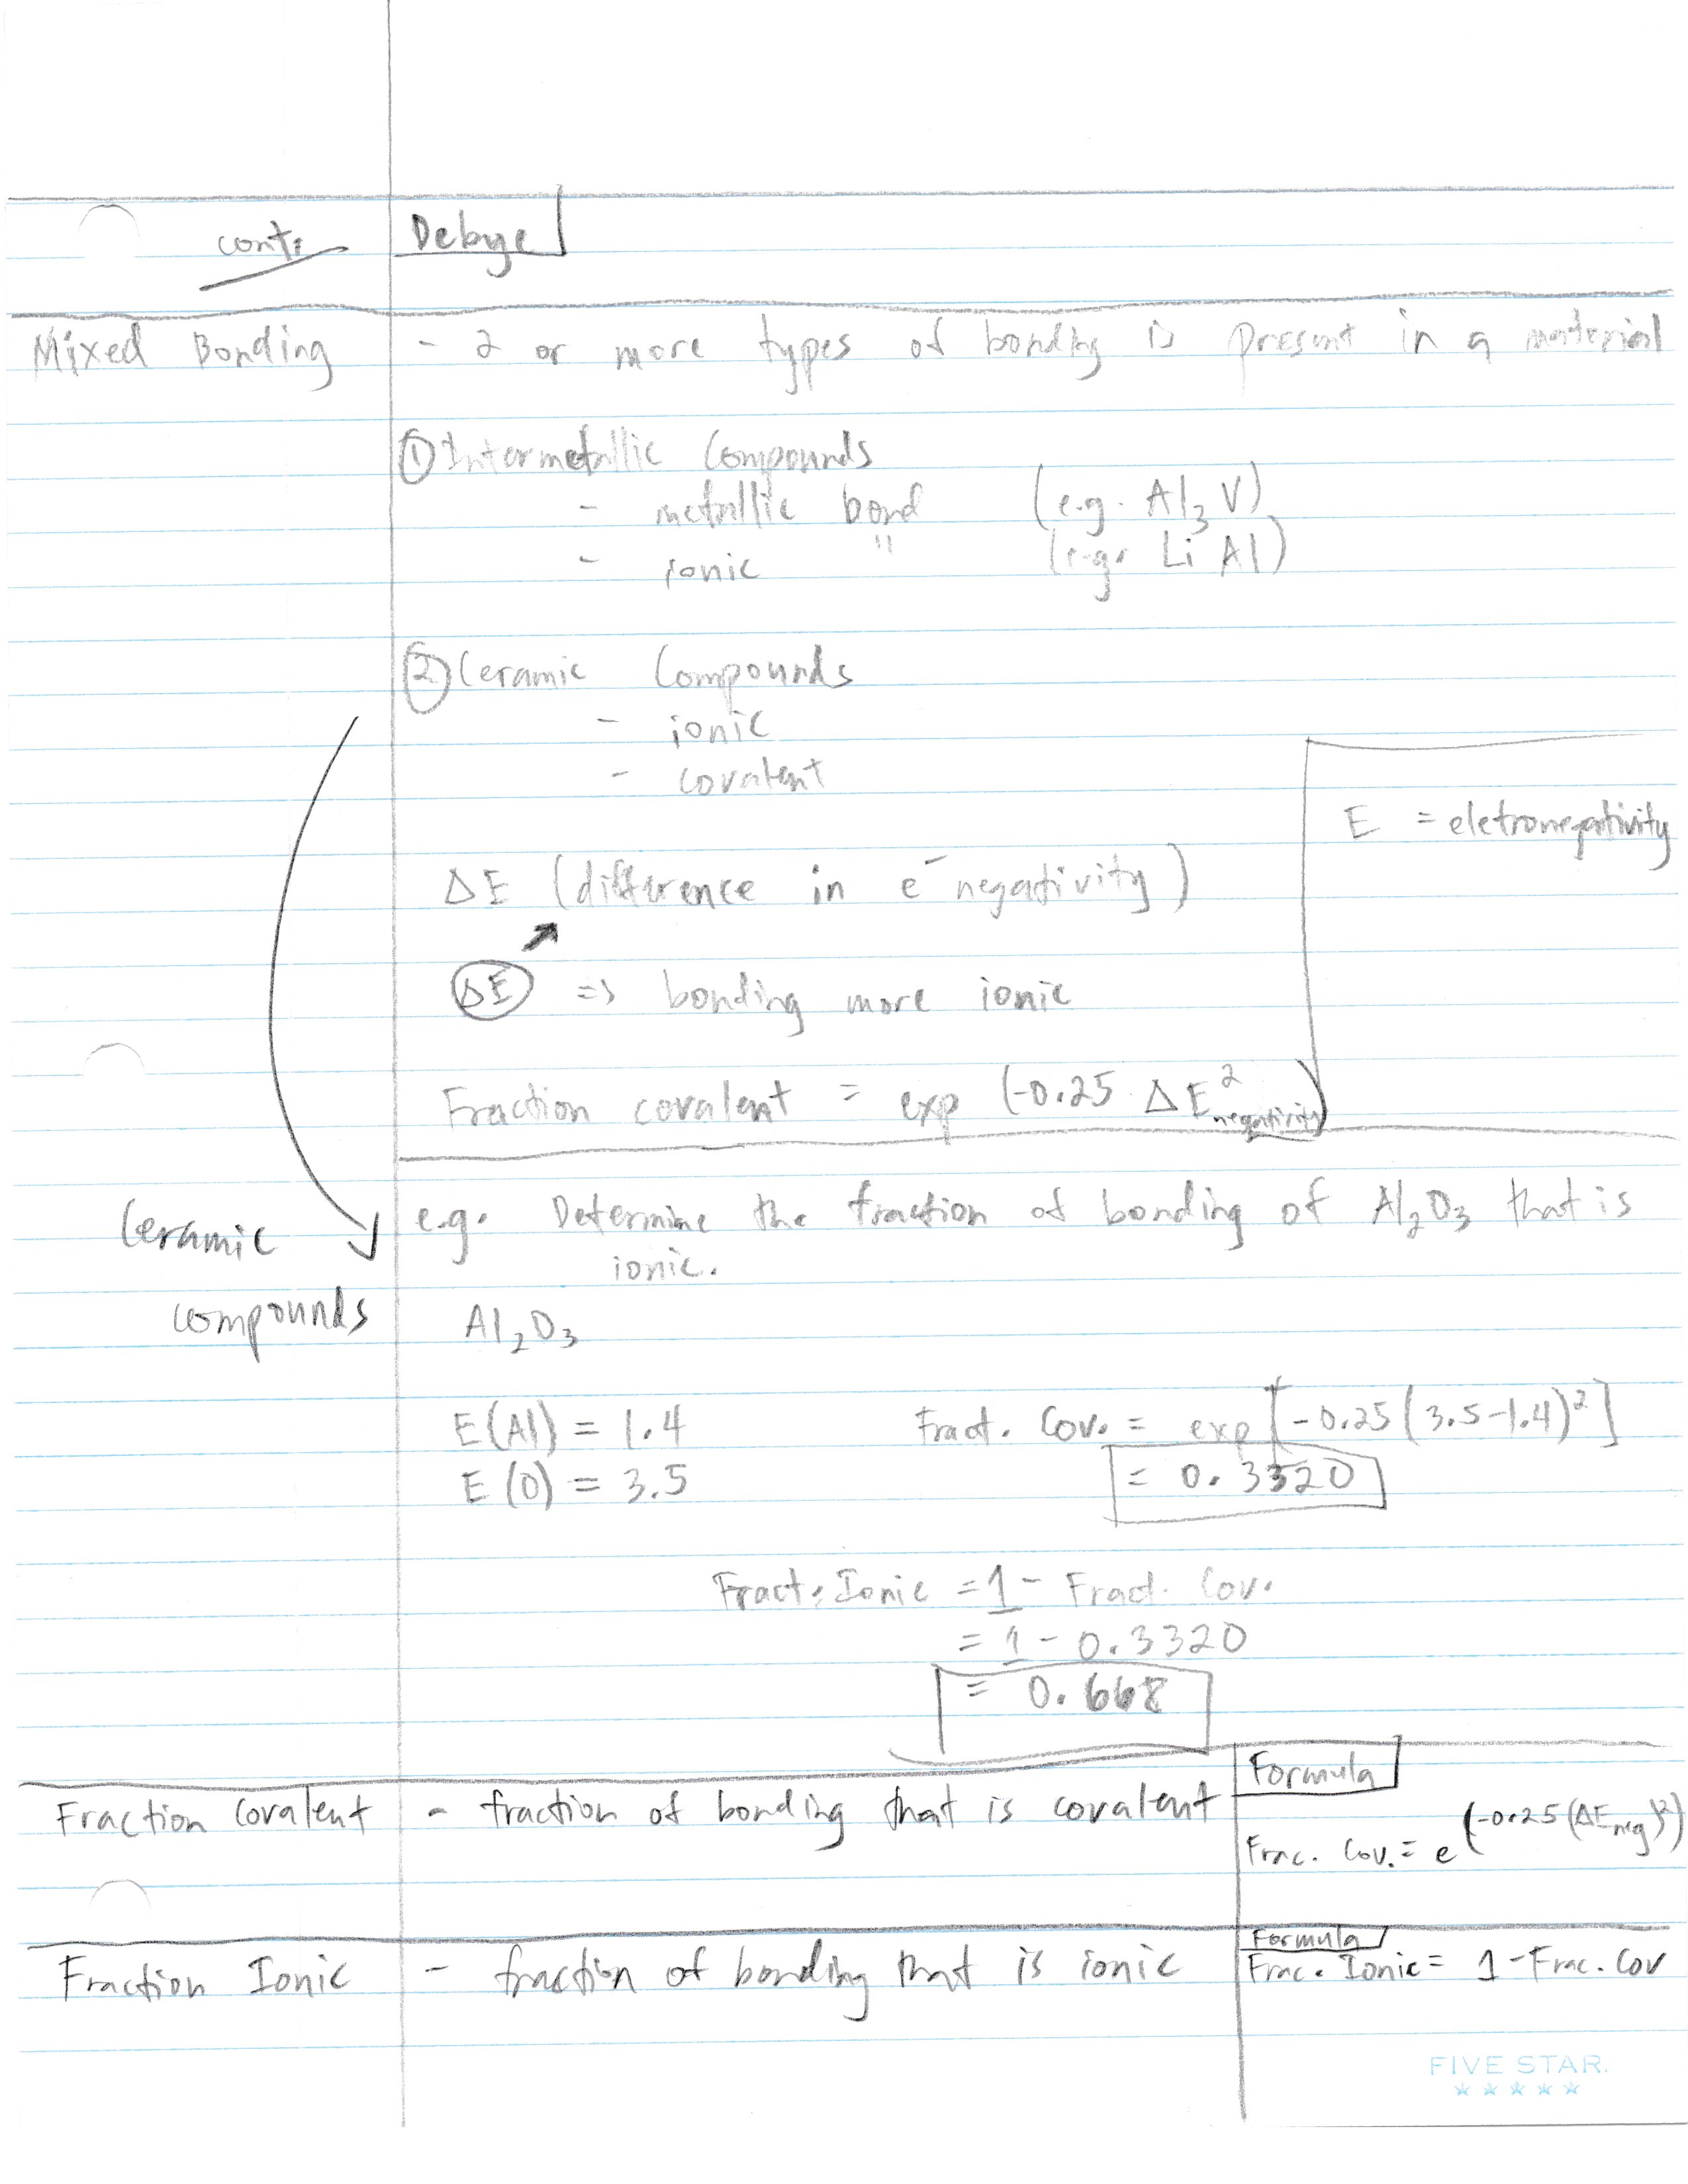 cont. Debye
Mixed Bonding - 2 or more types of bonding is present in a material
① Intermetallic Compounds
- metallic bond (e.g. Al₃V)
- ionic " (e.g. LiAl)
② Ceramic Compounds
- ionic
- covalent
E = eletronegativity
ΔE (difference in e⁻ negativity)
ΔE => bonding more ionic
Fraction covalent = exp (-0.25 ΔE²negativity)
Ceramic compounds
e.g. Determine the fraction of bonding of Al₂O₃ that is
ionic.
Al₂O₃
E(Al) = 1.4
E(O) = 3.5
Fract. Cov. = exp[-0.25(3.5-1.4)²]
= 0.3320
Fract. Ionic = 1 - Fract. Cov.
= 1 - 0.3320
= 0.668
Fraction Covalent - fraction of bonding that is covalent
Formula
Frac. Cov. = e^(-0.25(ΔEneg)²)
Fraction Ionic - fraction of bonding that is ionic
Formula
Frac. Ionic = 1 - Frac. Cov
FIVE STAR.